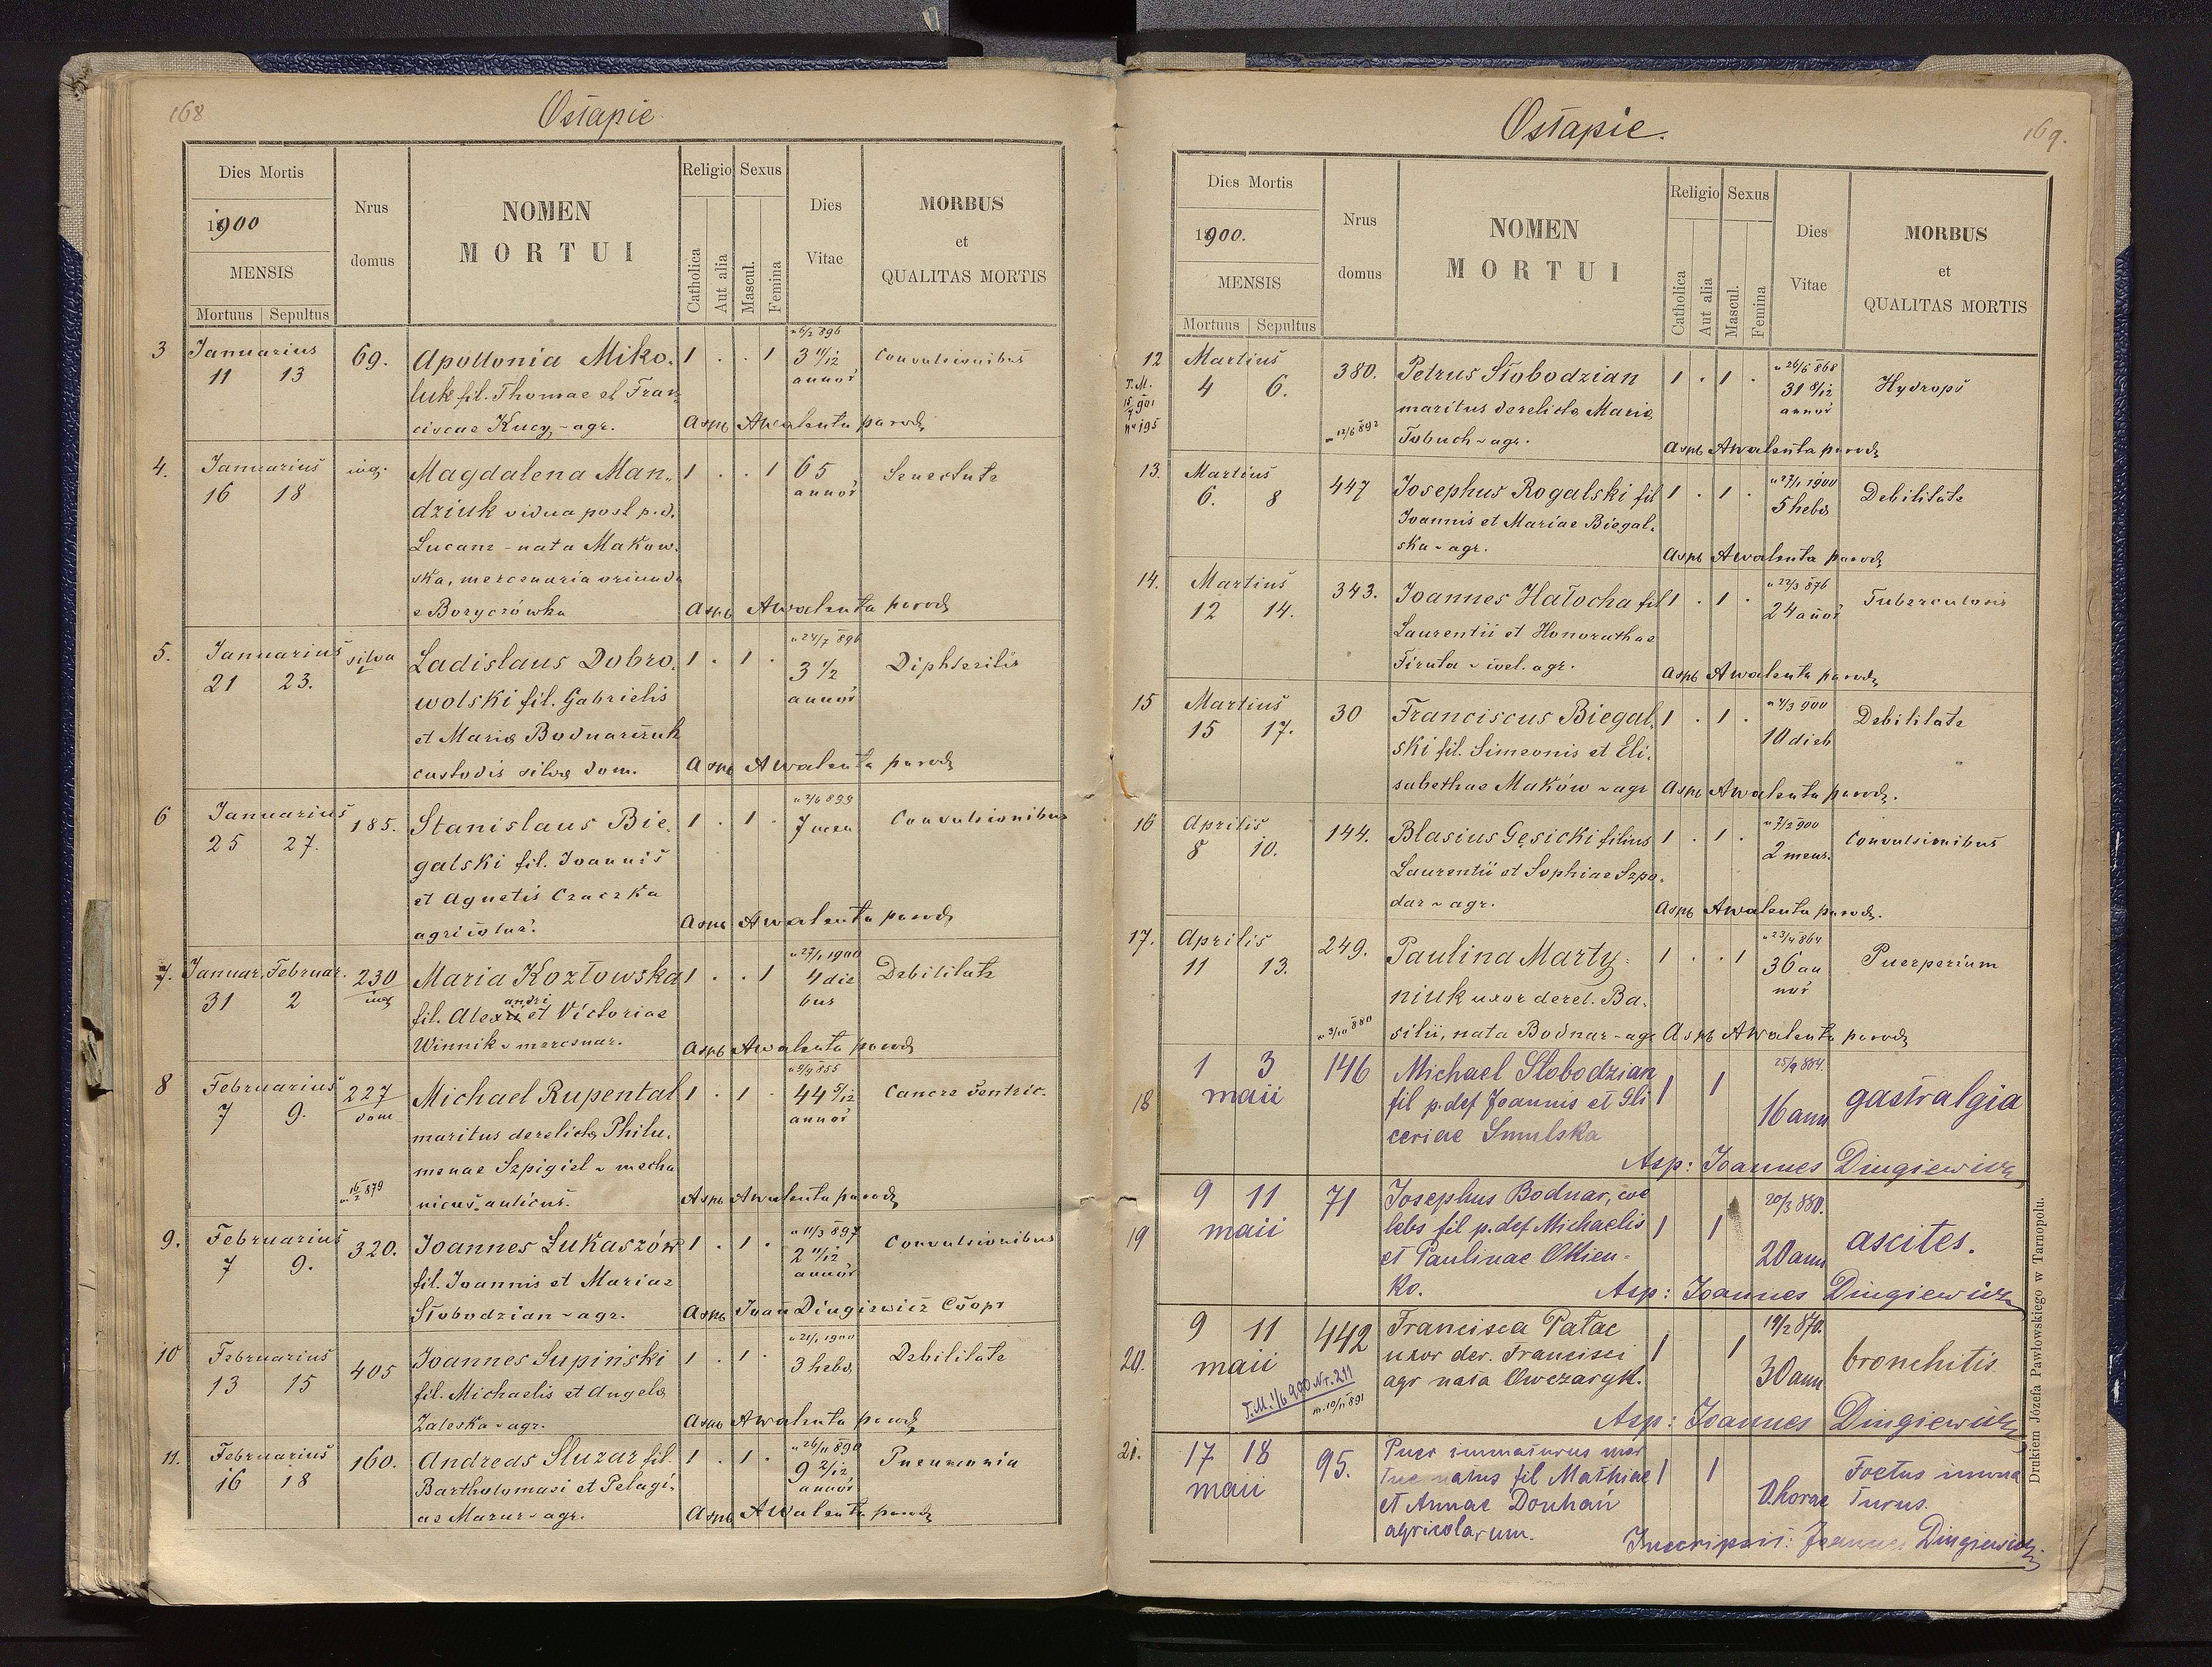 168
Ostapie
Dies Mortis
1900
MENSIS
Mortuus Sepultus
Nrus domus
NOMEN
MORTUI
Religio
Catholica
Aut alia
Sexus
Mascul.
Femina
Dies Vitae
MORBUS
et
QUALITAS MORTIS
3 Januarius 69. Apollonia Miko- 1 . . 1 n 6/2 896 Convulsionibus
11 13 luk fil. Thomae et Fran 3 11/12
ciscae Kucy - agr. annor
Aspb AWalenta paroch
4. Januarius inq. Magdalena Man- 1 . . 1 65 Senectute
16 18 dziuk vidua post p.d. annor
Lucam - nata Makow-
ska, mercenaria oriunda
e Boryczówka Aspb AWalenta paroch
5. Januarius silva Ladislaus Dobro- 1 . 1 . n 24/7 896 Diphteritis
21 23. wolski fil. Gabrielis 3 1/2
et Mariae Bodnarczuk annor
custodis silvae dom. Aspb AWalenta paroch
6 Januarius 185. Stanislaus Bie- 1 . 1 . n 2/6 899 Convulsionibus
25 27. galski fil. Joannis 7 mens
et Agnetis Czaczka
agricolar. Aspb AWalenta paroch
7. Januar. Februar. 230 Maria Kozłowska 1 . . 1 n 27/1 1900 Debilitate
31 2 inq fil. Alexandri et Victoriae 4 die
Winnik - mercenar. bus
Aspb AWalenta paroch
8 Februarius 227 Michael Rupental 1 . 1 . n 9/9 855 Cancre ventric.
7 9. dom maritus derelictae Philu- 44 5/12
menae Szpigiel - mecha annor
m 16/2 879 nicus aulicus. Aspb AWalenta paroch
9. Februarius 320. Joannes Łukaszów 1 . 1 . n 11/3 897 Convulsionibus
7 9. fil. Joannis et Mariae 2 11/12
Słobodzian - agr. annor
Aspb Joan Dingiewicz Coop
10 Februarius 405 Joannes Supiński 1 . 1 . n 21/1 1900 Debilitate
13 15 fil. Michaelis et Angelae 3 hebd
Zaleska - agr. Aspb AWalenta paroch
11. Februarius 160. Andreas Sluzar fil. 1 . 1 . n 26/11 890 Pneumonia
16 18 Bartholomaei et Pelagi- 9 2/12
ae Mazur - agr. annor
Aspb AWalenta paroch
169.
Ostapie.
Dies Mortis
1900.
MENSIS
Mortuus Sepultus
Nrus domus
NOMEN
MORTUI
Religio
Catholica
Aut alia
Sexus
Mascul.
Femina
Dies Vitae
MORBUS
et
QUALITAS MORTIS
12 Martius 380. Petrus Słobodzian 1 . 1 . n 26/6 868 Hydrops
T.M. 15/7 901 4 6. maritus derelictae Mariae 31 8/12
Nr 195 m 12/6 892 Tobuch - agr. annor
Aspb AWalenta paroch
13. Martius 447 Josephus Rogalski fil 1 . 1 . n 27/1 1900 Debilitate
6. 8 Joannis et Mariae Biegal- 5 hebd
ska - agr. Aspb AWalenta paroch
14. Martius 343. Joannes Hałocha fil 1 . 1 . n 22/3 876 Tuberculosis
12 14. Laurentii et Honorathae 24 anor
Firuta - coel. agr. Aspb AWalenta paroch
15 Martius 30 Franciscus Biegal- 1 . 1 . n 4/3 900 Debilitate
15 17. ski fil. Simeonis et Eli- 10 dieb
sabethae Maków - agr Aspb AWalenta paroch.
16 Aprilis 144. Blasius Gęsicki filius 1 . 1 . n 7/2 900 Convulsionibus
8 10. Laurentii et Sophiae Szpo- 2 mens.
dar - agr. Aspb AWalenta paroch.
17. Aprilis 249. Paulina Marty- 1 . . 1 n 23/4 864 Puerperium
11 13. niuk uxor derel. Ba- 36 an
m 3/10 880 silii, nata Bodnar - agr nor
Aspb AWalenta paroch
18 1 3 146 Michael Słobodzian 1 1 25/9 884. gastralgia
maii fil p.def Joannis et Gli 16 ann
ceriae Smulska
Asp: Joannes Dingiewicz
19 9 11 71 Josephus Bodnar, coe 1 1 20/3 880. ascites.
maii lebs fil p.def Michaelis 20 ann
et Paulinae Okien-
ko. Asp: Joannes Dingiewicz
20. 9 11 442 Francisca Pałac 1 1 19/2 870. bronchitis
maii uxor der. Francisci 30 ann
T.M. 1/6 900 Nr. 211 m. 10/11 891 agr nata Owczaryk.
Asp: Joannes Dingiewicz
21. 17 18 95. Puer immaturus mor 1 1 0 horae Foetus imma
maii tue natus fil Mathiae turus.
et Annae Douhań
agricolarum. Inscripsit: Joannes Dingiewicz
Drukiem Józefa Pawłowskiego w Tarnopolu.